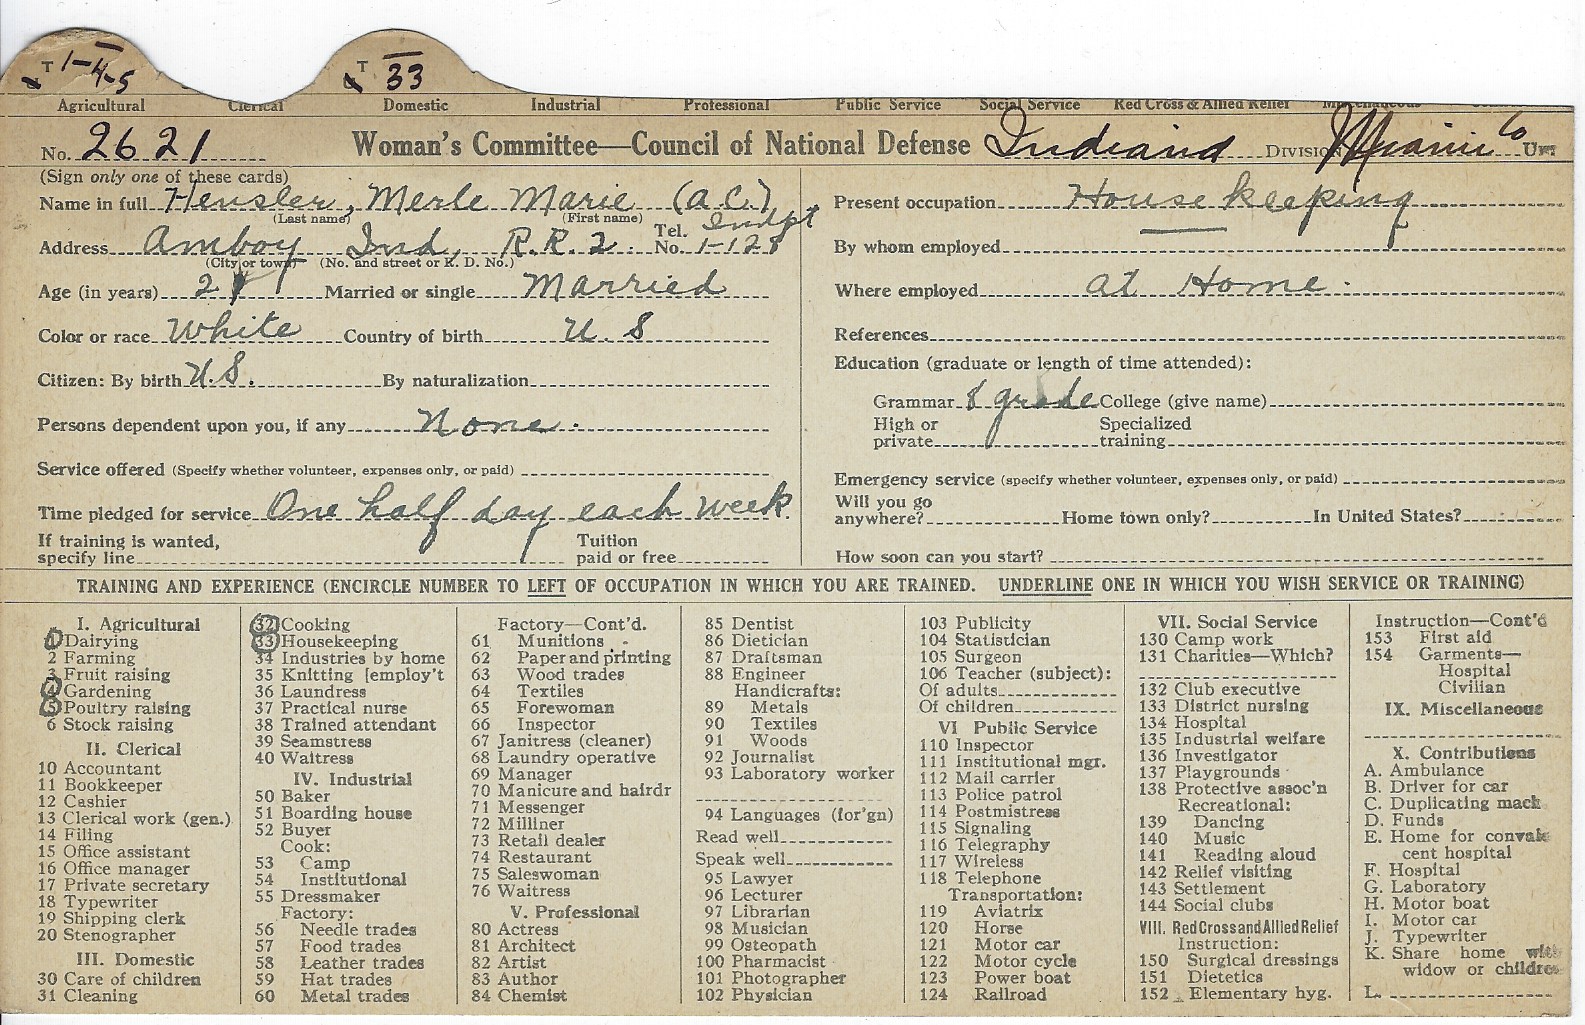 T 1-4-5 T 33
Agricultural Clerical Domestic Industrial Professional Public Service Social Service Red Cross & Allied Relief Miscellaneous
No. 2621 Woman's Committee—Council of National Defense Indiana DIVISION Miami Co
(Sign only one of these cards)
Name in full Hensler, Merle Marie (A.C.)
(Last name) (First name)
Address Amboy Ind. R.R. 2. Tel. No. Indpt 1-128
(City or town) (No. and street or R. D. No.)
Age (in years) Married or single Married
Color or race White Country of birth U. S
Citizen: By birth U.S. By naturalization
Persons dependent upon you, if any None.
Service offered (Specify whether volunteer, expenses only, or paid)
Time pledged for service One half day each week.
If training is wanted, Tuition
specify line paid or free
Present occupation House keeping
By whom employed
Where employed at Home.
References
Education (graduate or length of time attended):
Grammar 8 grade College (give name)
High or Specialized
private training
Emergency service (specify whether volunteer, expenses only, or paid)
Will you go
anywhere? Home town only? In United States?
How soon can you start?
TRAINING AND EXPERIENCE (ENCIRCLE NUMBER TO LEFT OF OCCUPATION IN WHICH YOU ARE TRAINED. UNDERLINE ONE IN WHICH YOU WISH SERVICE OR TRAINING)
I. Agricultural
1 Dairying
2 Farming
3 Fruit raising
4 Gardening
5 Poultry raising
6 Stock raising
II. Clerical
10 Accountant
11 Bookkeeper
12 Cashier
13 Clerical work (gen.)
14 Filing
15 Office assistant
16 Office manager
17 Private secretary
18 Typewriter
19 Shipping clerk
20 Stenographer
III. Domestic
30 Care of children
31 Cleaning
32 Cooking
33 Housekeeping
34 Industries by home
35 Knitting [employ't
36 Laundress
37 Practical nurse
38 Trained attendant
39 Seamstress
40 Waitress
IV. Industrial
50 Baker
51 Boarding house
52 Buyer
Cook:
53 Camp
54 Institutional
55 Dressmaker
Factory:
56 Needle trades
57 Food trades
58 Leather trades
59 Hat trades
60 Metal trades
Factory—Cont'd.
61 Munitions
62 Paper and printing
63 Wood trades
64 Textiles
65 Forewoman
66 Inspector
67 Janitress (cleaner)
68 Laundry operative
69 Manager
70 Manicure and hairdr
71 Messenger
72 Milliner
73 Retail dealer
74 Restaurant
75 Saleswoman
76 Waitress
V. Professional
80 Actress
81 Architect
82 Artist
83 Author
84 Chemist
85 Dentist
86 Dietician
87 Draftsman
88 Engineer
Handicrafts:
89 Metals
90 Textiles
91 Woods
92 Journalist
93 Laboratory worker
94 Languages (for'gn)
Read well
Speak well
95 Lawyer
96 Lecturer
97 Librarian
98 Musician
99 Osteopath
100 Pharmacist
101 Photographer
102 Physician
103 Publicity
104 Statistician
105 Surgeon
106 Teacher (subject):
Of adults
Of children
VI Public Service
110 Inspector
111 Institutional mgr.
112 Mail carrier
113 Police patrol
114 Postmistress
115 Signaling
116 Telegraphy
117 Wireless
118 Telephone
Transportation:
119 Aviatrix
120 Horse
121 Motor car
122 Motor cycle
123 Power boat
124 Railroad
VII. Social Service
130 Camp work
131 Charities—Which?
132 Club executive
133 District nursing
134 Hospital
135 Industrial welfare
136 Investigator
137 Playgrounds
138 Protective assoc'n
Recreational:
139 Dancing
140 Music
141 Reading aloud
142 Relief visiting
143 Settlement
144 Social clubs
VIII. Red Cross and Allied Relief
Instruction:
150 Surgical dressings
151 Dietetics
152 Elementary hyg.
Instruction—Cont'd
153 First aid
154 Garments—
Hospital
Civilian
IX. Miscellaneous
X. Contributions
A. Ambulance
B. Driver for car
C. Duplicating mach
D. Funds
E. Home for convales
cent hospital
F. Hospital
G. Laboratory
H. Motor boat
I. Motor car
J. Typewriter
K. Share home with
widow or children
L.